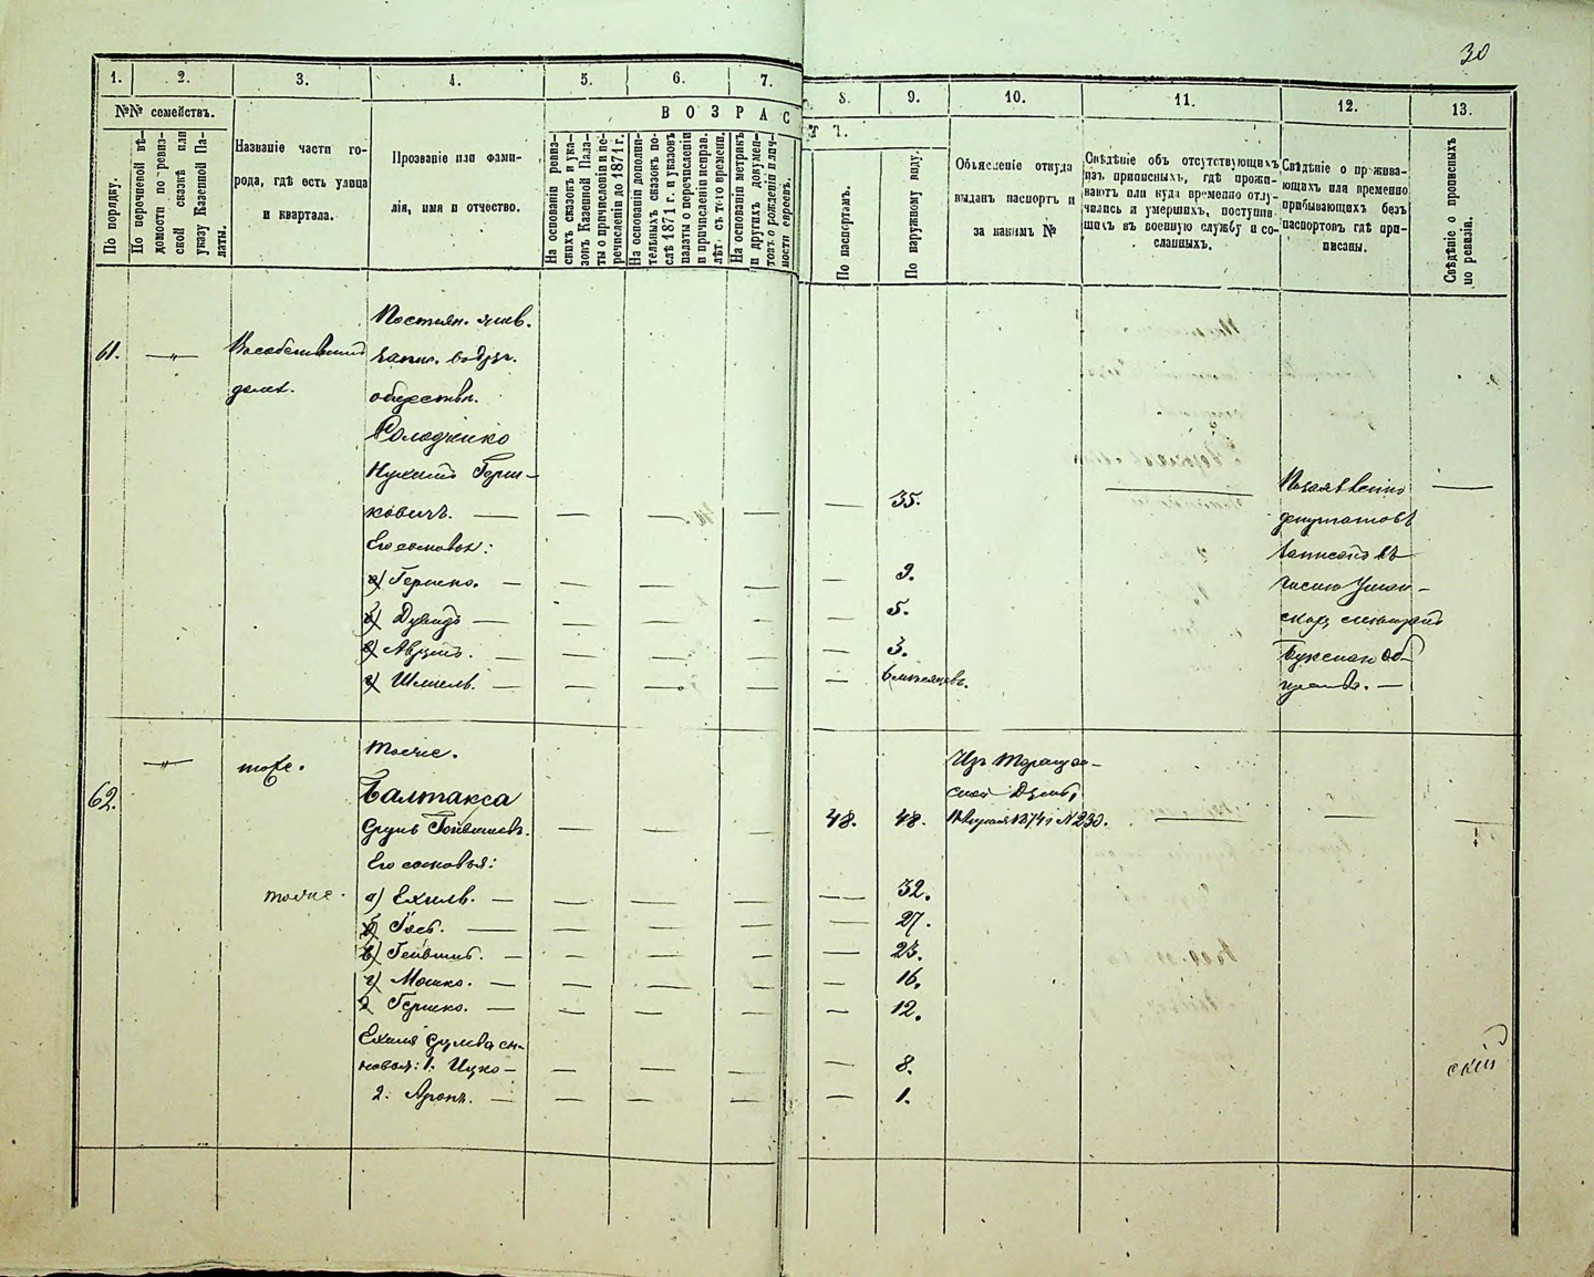 30
1.
2.
3.
4.
5.
6.
7.
8.
9.
10.
11.
12.
13.
№№ семействъ.
По порядку.
По перечневой вѣ-
домости по ревиз-
ской сказкѣ или
указу Казенной Па-
латы.
Названіе части го-
рода, гдѣ есть улица
и квартала.
Прозваніе или фами-
лія, имя и отчество.
ВОЗРАС
Т Ъ.
На основаніи ревиз-
скихъ сказокъ и ука-
зовъ Казенной Пала-
ты о причисленіи и пе-
речисленіи до 1871 г.
На основаніи дополни-
тельныхъ сказокъ по-
слѣ 1871 г. и указовъ
палаты о перечисленіи
и причисленіи исправ.
лѣт съ того времени.
На основаніи метрикъ
и другихъ докумен-
товъ о рожденіи и лич-
ности евреевъ.
По паспортамъ.
По наружному виду.
Объясненіе откуда
выданъ паспортъ и
за какимъ №
Свѣдѣніе объ отсутствующихъ
изъ приписныхъ, гдѣ прожи-
ваютъ или куда временно отлу-
чились и умершихъ, поступив-
шихъ въ военную службу и со-
сланныхъ.
Свѣдѣніе о прожива-
ющихъ или временно
прибывающихъ безъ
паспортовъ гдѣ при-
писаны.
Свѣдѣніе о прописныхъ
по ревизіи.
61. — " —
домѣ.
Постоян. жив.
запис. въ др.
обществ.
Солодченко
Нухимъ Герш-
ковичъ. — — — — — 35. — —
Его сыновья:
а) Гершко. — — — — — 9.
б) Дувидъ — — — — — 5.
в) Аврумъ. — — — — — 3.
г) Шмиль. — — — — — 6 мѣсяцевъ.
По заявленію
депутатовъ
записанъ въ
число Уман-
общества. —
62. — " — тоже.
Тоже.
Балтакса
Его сыновья:
48. 48.
Изъ Таращан-
ской Думы,
1874 г. № 230. — — —
тоже. а) Ехиль. — — — — — 32.
б) Гось. — — — — — 27.
в) — — — — — 23.
г) Мошко. — — — — — 16.
д) Гершко. — — — — — 12.
Ехиля Сулева сы-
новья: 1. Ицко — — — — — 8.
2. Аронъ. — — — — — 1.
скій